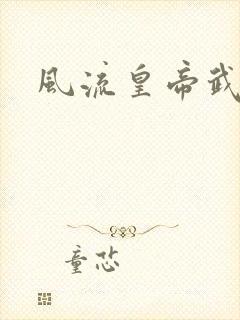 風流皇帝武
童恐